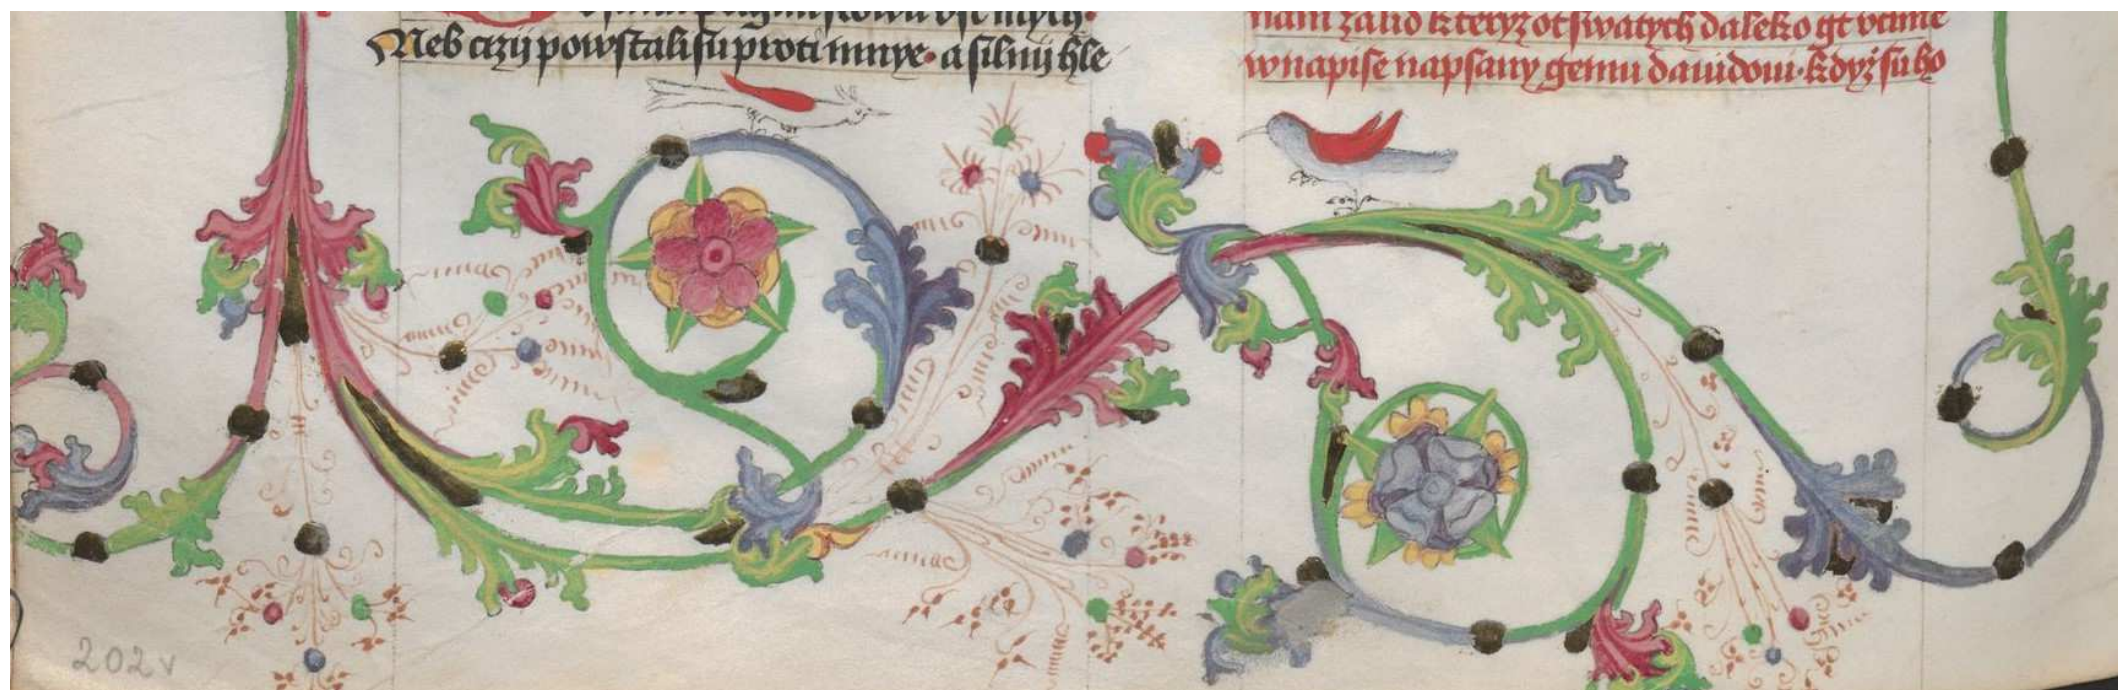 Neb czij powstali su proti mnye · a silnij hle
nam za lid kteryz ot swatych daleko gt vcine
w napise napsany gemu dauidoui · kdyż su ho
202v